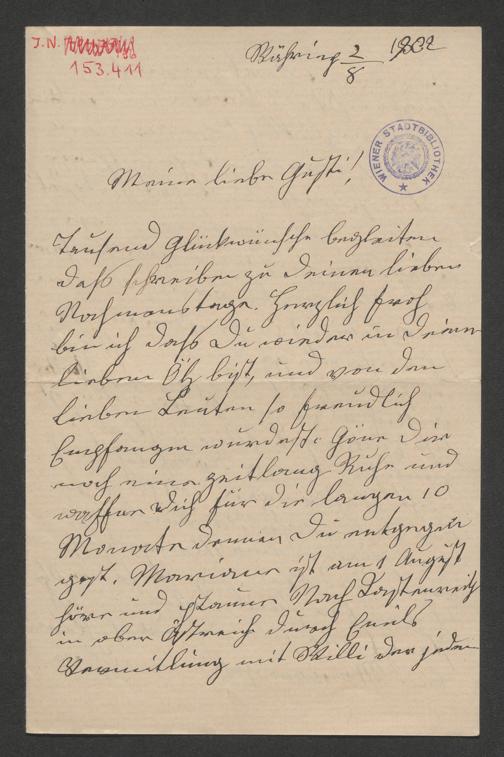 J.N.
153.411
Währing 2/8 1902
WIENER STADTBIBLIOTHEK
Meine liebe Gusti!
Tausend Glückwünsche begleiten
dass schreiben zu Deinen lieben
Nachmenstage. Herzlich froh
bin ich dass Du wieder in Deinen
lieben Ötz bist, und von den
lieben Leuten so freundlich
Empfangen wurdest. Göne Dir
noch eine zeitlang Ruhe und
waffne Dich für die langen 10
Monate denen Du entgegen
gest. Mariane ist am 1 August
höre und staune Nach Kastenreith
in ober Östreich durch Emils
Vermitlung mit Willi der jeden